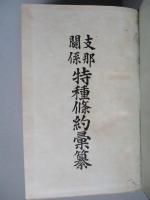 支那關係
特種條約彙纂